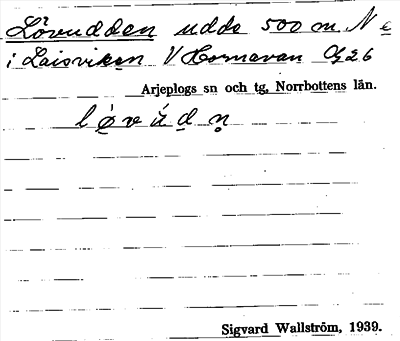 Lövudden udde 500 m N e
i Laisviken V Hornavan Og 26
Arjeplogs sn och tg, Norrbottens län.
l ø v ú d n̥
Sigvard Wallström, 1939.